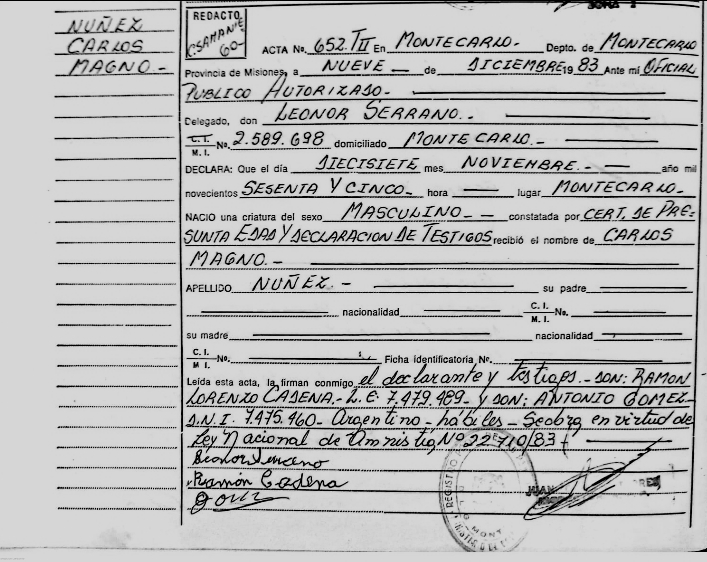 NUÑEZ
CARLOS
MAGNO.-
REDACTO
60-
ACTA No. 652.TII En MONTECARLO.- Depto. de MONTECARLO
Provincia de Misiones, a NUEVE de DICIEMBRE 1983 Ante mí OFICIAL
PUBLICO AUTORIZADO.-
Delegado, don LEONOR SERRANO.-
C.I. M.I. No. 2.589.698 domiciliado MONTECARLO.-
DECLARA: Que el día DIECISIETE mes NOVIEMBRE.- año mil
novecientos SESENTA Y CINCO- hora lugar MONTECARLO-
NACIO una criatura del sexo MASCULINO.- constatada por CERT. DE PRE-
SUNTA EDAD Y DECLARACION DE TESTIGOS recibió el nombre de CARLOS
MAGNO.-
APELLIDO NUÑEZ.- su padre
nacionalidad C.I. M.I. No.
su madre nacionalidad
C.I. M.I. No. Ficha identificatoria No.
Leída esta acta, la firman conmigo el declarante y testigos.- DON: RAMON
LORENZO CADENA.- L.E. 7.479.489- y DON: ANTONIO GOMEZ-
D.N.I. 7.475.460- Argentino- hábiles- Se obra en virtud de
Ley Nacional de Amnistia Nº 22.710/83
Ramón Cadena
JUAN